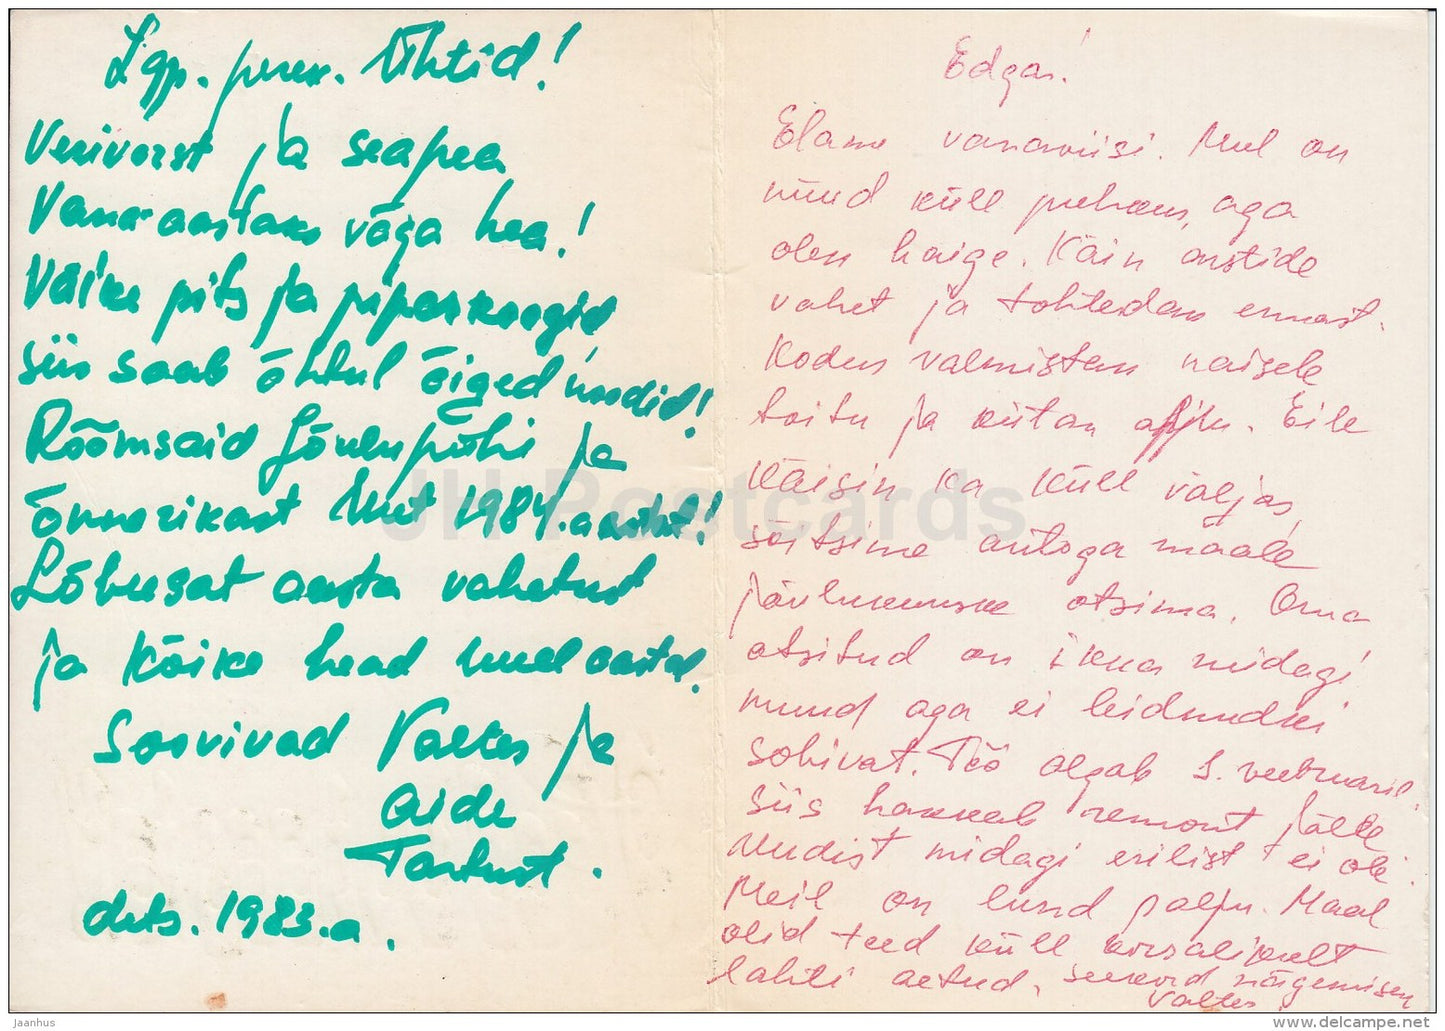 Lgp. peren. Ühtid!
Verivorst ja seapea
Vana-aastaks väga hea!
Väike pits ja piparkoogid
siis saab õhtul õiged moodid!
Rõõmsaid Jõulupühi ja
õnnerikast Uut 1984.aastat!
Lõbusat aasta vahetust
ja Kõike head uuel aastal.
Soovivad Valter ja
Aide
Tartust.
dets. 1983.a.
Edgar!
Elame vanaviisi. Mul on
nüüd küll puhkus, aga
olen haige. Käin arstide
vahet ja tohterdan ennast.
Kodus valmistan naisele
toitu ja kütan ahju. Eile
Käisin ka küll väljas,
sõitsime autoga maale
jõulukuuske otsima. Oma
otsitud on ikka midagi
muud aga ei leidnudki
sobivat. Töö algab 1. veebruaril.
siis hakkab remont jälle
Uudist midagi erilist ei ole.
Meil on lund palju. Maal
olid teed küll korralikult
lahti aetud. seekord nägemiseni
Valter.
JH Postcards
jaanhus
www.delcampe.net